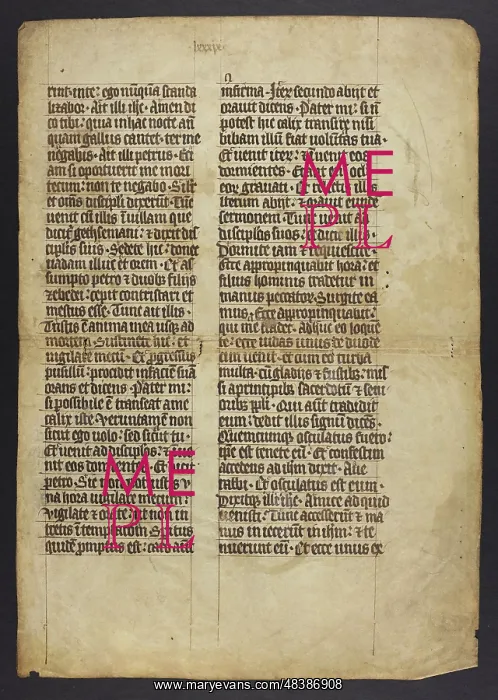 lxxix
rint in te: ego nūqua scanda
lizabor. Ait illi ihc. Amen di
co tibi: quia in hac nocte añ
quam gallus cantet: ter me
negabis. Ait illi petrus. Eti
am si oportuerit me mori
tecum: non te negabo. Sil̄r
et om̄s discipli dixerūt. Tūc
uenit cū illis ī uillam que
dicit̄ gethsemani: ⁊ dixit dis
ciplis suis. Sedete hic: donec
uadam illuc et orem. Et as
sumpto petro ⁊ duob; filijs
zebedei: cepit contristari et
mestus esse. Tunc ait illis.
Tristis ē anima mea usq; ad
mortem. Sustinete hic: et
uigilate mecū. Et progressus
pusillū: procidit in faciē suā
orans et dicens. Pater mi:
si possibile ē transeat a me
calix iste. Veruntamē non
sicut ego uolo: sed sicut tu.
Et uenit ad disciplos: ⁊
nit eos dormientes. Et dicit
petro. Sic non potuistis v
na hora uigilare mecum:
Vigilate ⁊ orate: ut non in
tretis ī temptacōm. Spiritus
quidē promptus est: caro aūt
infirma. Iter̄ secundo abijt et
orauit dicens. Pater mi: si ñ
potest hic calix transire nisi
bibam illū: fiat uolūtas tua.
Et uenit iter̄: ⁊ inuenit eos
dormientes. Erant oculi
eoꝝ grauati. Et relictis illis
iterum abijt: ⁊ orauit eundē
sermonem. Tunc uenit ad
disciplos suos: ⁊ dicit illis.
Dormite iam ⁊ requiescite.
Ecce appropinquabit hora: et
filius hominis tradetur in
manus peccatoꝝ. Surgite ea
mus. Ecce appropinquabit:
qui me tradet. Adhuc eo loque
te: ecce iudas unus de duode
cim uenit. et cum eo turba
multa: cū gladijs ⁊ fustib;: mis
si a principib; sacerdotū ⁊ seni
orib; ppli. Qui aūt tradidit
eum: dedit illis signū dicēs.
Quemcumq; osculatus fuero:
ipse est tenete eū. Et confestim
accedens ad ihm dixit. Aue
rabbi. Et osculatus est eum.
Dixitq; illi ihc. Amice ad quid
uenisti: Tunc accesserūt ⁊ ma
nus iniecerūt in ihm: ⁊ te
nuerunt eū. Et ecce unus ex
ME
PL
ME
PL
www.maryevans.com/48386908